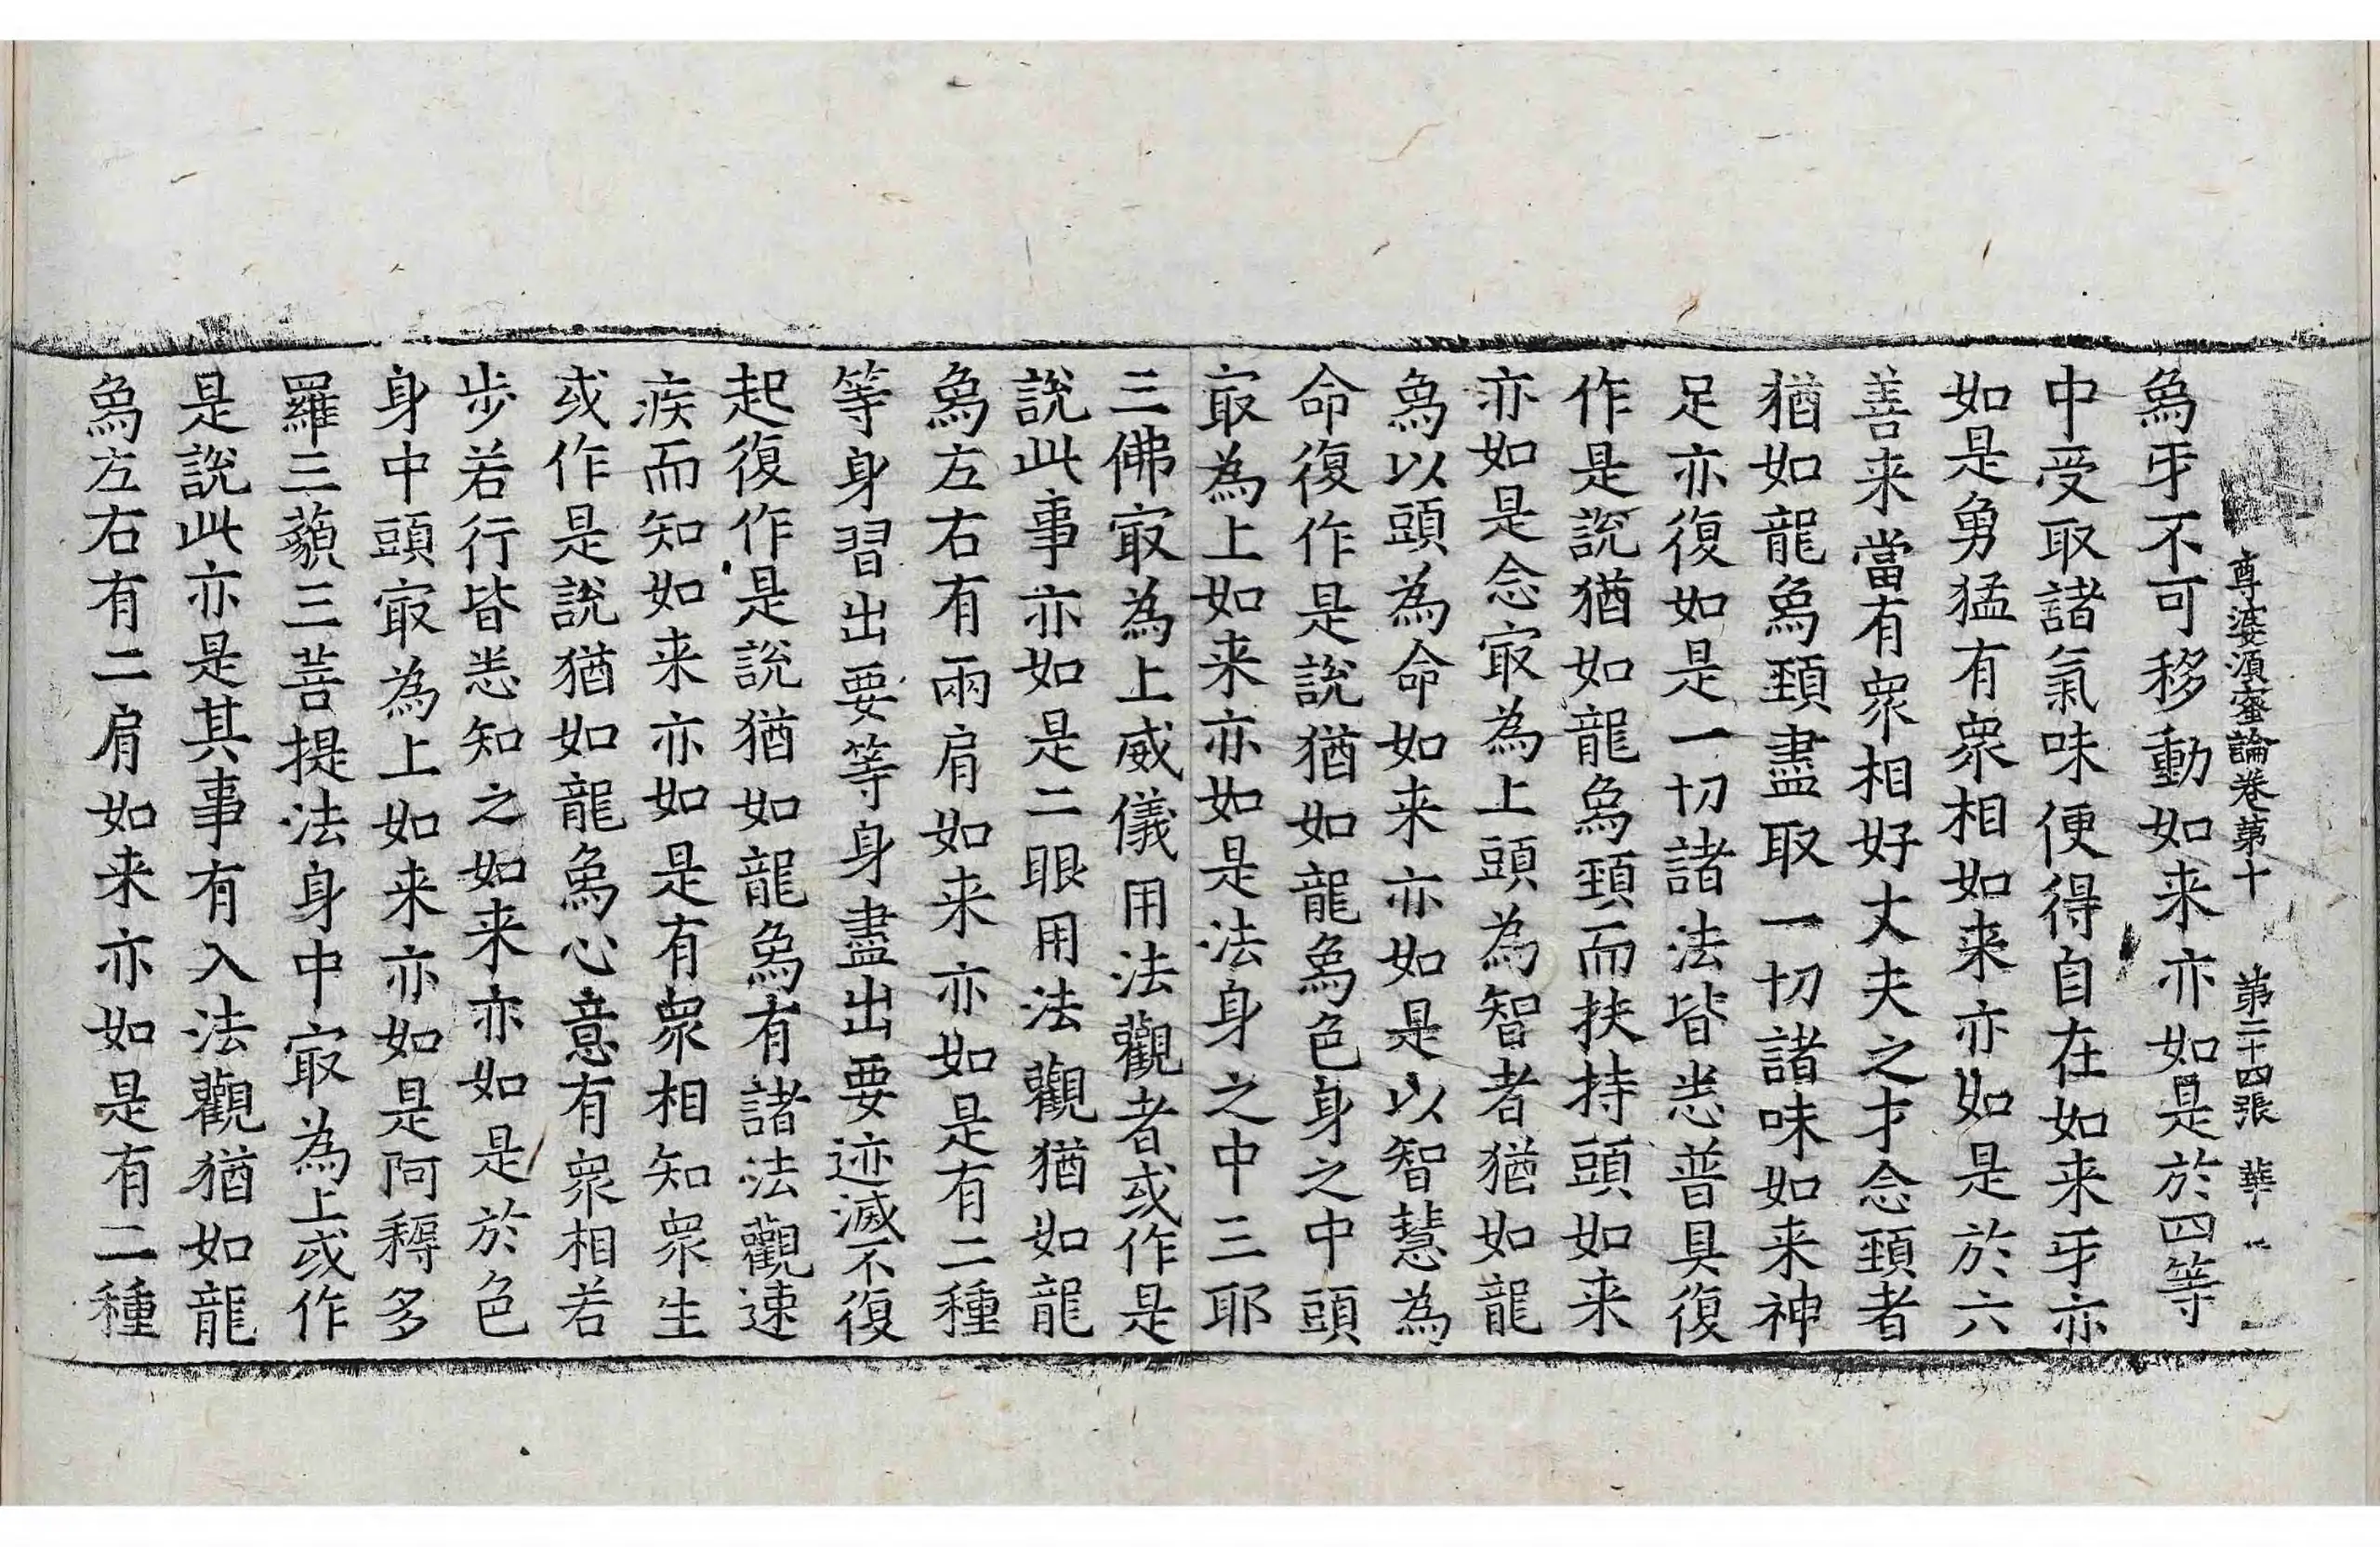 尊婆湏蜜論卷第十 第二十四張 華
為牙不可移動如来亦如是於四等
中受取諸氣味便得自在如来牙亦
如是勇猛有衆相如来亦如是於六
善来當有衆相好丈夫之才念頸者
猶如龍爲頸盡取一切諸味如来神
足亦復如是一切諸法皆悉普具復
作是說猶如龍爲頸而扶持頭如来
亦如是念㝡為上頭為智者猶如龍
爲以頭為命如来亦如是以智慧為
命復作是說猶如龍爲色身之中頭
㝡為上如来亦如是法身之中三耶
三佛㝡為上威儀用法觀者或作是
說此事亦如是二眼用法觀猶如龍
爲左右有兩肩如来亦如是有二種
等身習出要等身盡出要迹滅不復
起復作是說猶如龍爲有諸法觀速
疾而知如来亦如是有衆相知衆生
或作是說猶如龍爲心意有衆相若
步若行皆悉知之如来亦如是於色
身中頭㝡為上如来亦如是阿耨多
羅三藐三菩提法身中㝡為上或作
是說此亦是其事有入法觀猶如龍
爲左右有二肩如来亦如是有二種